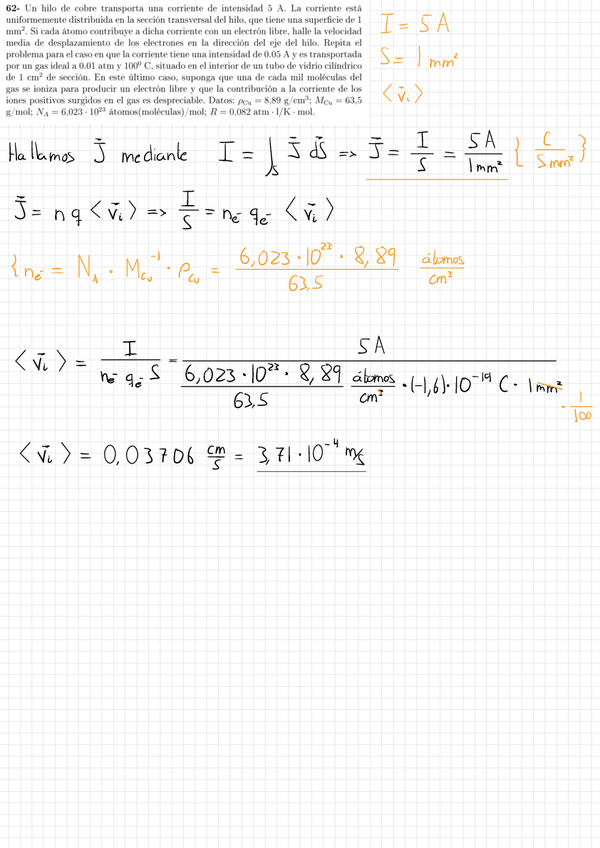 62- Un hilo de cobre transporta una corriente de intensidad 5 A. La corriente está
uniformemente distribuida en la sección transversal del hilo, que tiene una superficie de 1
mm². Si cada átomo contribuye a dicha corriente con un electrón libre, halle la velocidad
media de desplazamiento de los electrones en la dirección del eje del hilo. Repita el
problema para el caso en que la corriente tiene una intensidad de 0.05 A y es transportada
por un gas ideal a 0.01 atm y 100⁰ C, situado en el interior de un tubo de vidrio cilíndrico
de 1 cm² de sección. En este último caso, suponga que una de cada mil moléculas del
gas se ioniza para producir un electrón libre y que la contribución a la corriente de los
iones positivos surgidos en el gas es despreciable. Datos: ρCu = 8,89 g/cm³; MCu = 63,5
g/mol; NA = 6,023 · 10²³ átomos(moléculas)/mol; R = 0,082 atm · l/K · mol.
I = 5A
S = 1 mm²
⟨v̄ᵢ⟩
Hallamos J̄ mediante I = ∫ₛ J̄ dS̄ => J̄ = I/S = 5A/1mm² { C/S mm² }
J̄ = n q ⟨v̄ᵢ⟩ => I/S = nₑ- qₑ- ⟨v̄ᵢ⟩
{ nₑ- = N_A · M_Cu⁻¹ · ρ_Cu = 6,023 · 10²³ · 8,89 / 63,5 átomos/cm³
⟨v̄ᵢ⟩ = I / nₑ- qₑ- S = 5A / (6,023 · 10²³ · 8,89 / 63,5 átomos/cm³ · (-1,6) · 10⁻¹⁹ C · 1 mm² · 1/100)
⟨v̄ᵢ⟩ = 0,03706 cm/s = 3,71 · 10⁻⁴ m/s